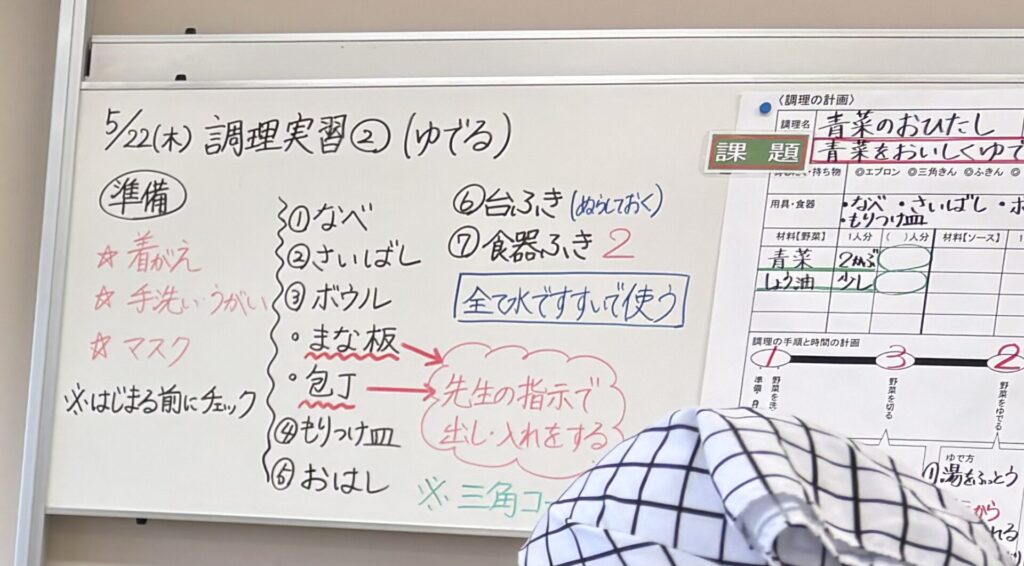 5/22(木) 調理実習② (ゆでる)
準備
☆ 着がえ
☆ 手洗い・うがい
☆ マスク
※はじまる前にチェック
①なべ
②さいばし
③ボウル
・まな板
・包丁
④もりつけ皿
⑤おはし
先生の指示で
出し・入れをする
⑥台ふき(ぬらしておく)
⑦食器ふき 2
全て水ですすいで使う
※三角コ
課題
〈調理の計画〉
調理名 青菜のおひたし
青菜をおいしくゆで
持ち物 ◎エプロン ◎三角きん ◎ふきん
用具・食器 ・なべ ・さいばし ・ボ
・もりつけ皿
材料【野菜】 1人分 ( )人分 材料【ソース】
青菜 2かぶ
しょう油 少し
調理の手順と時間の計画
1 3 2
野菜を切る
野菜をゆでる
ゆで方
湯をふっとう
から
れる